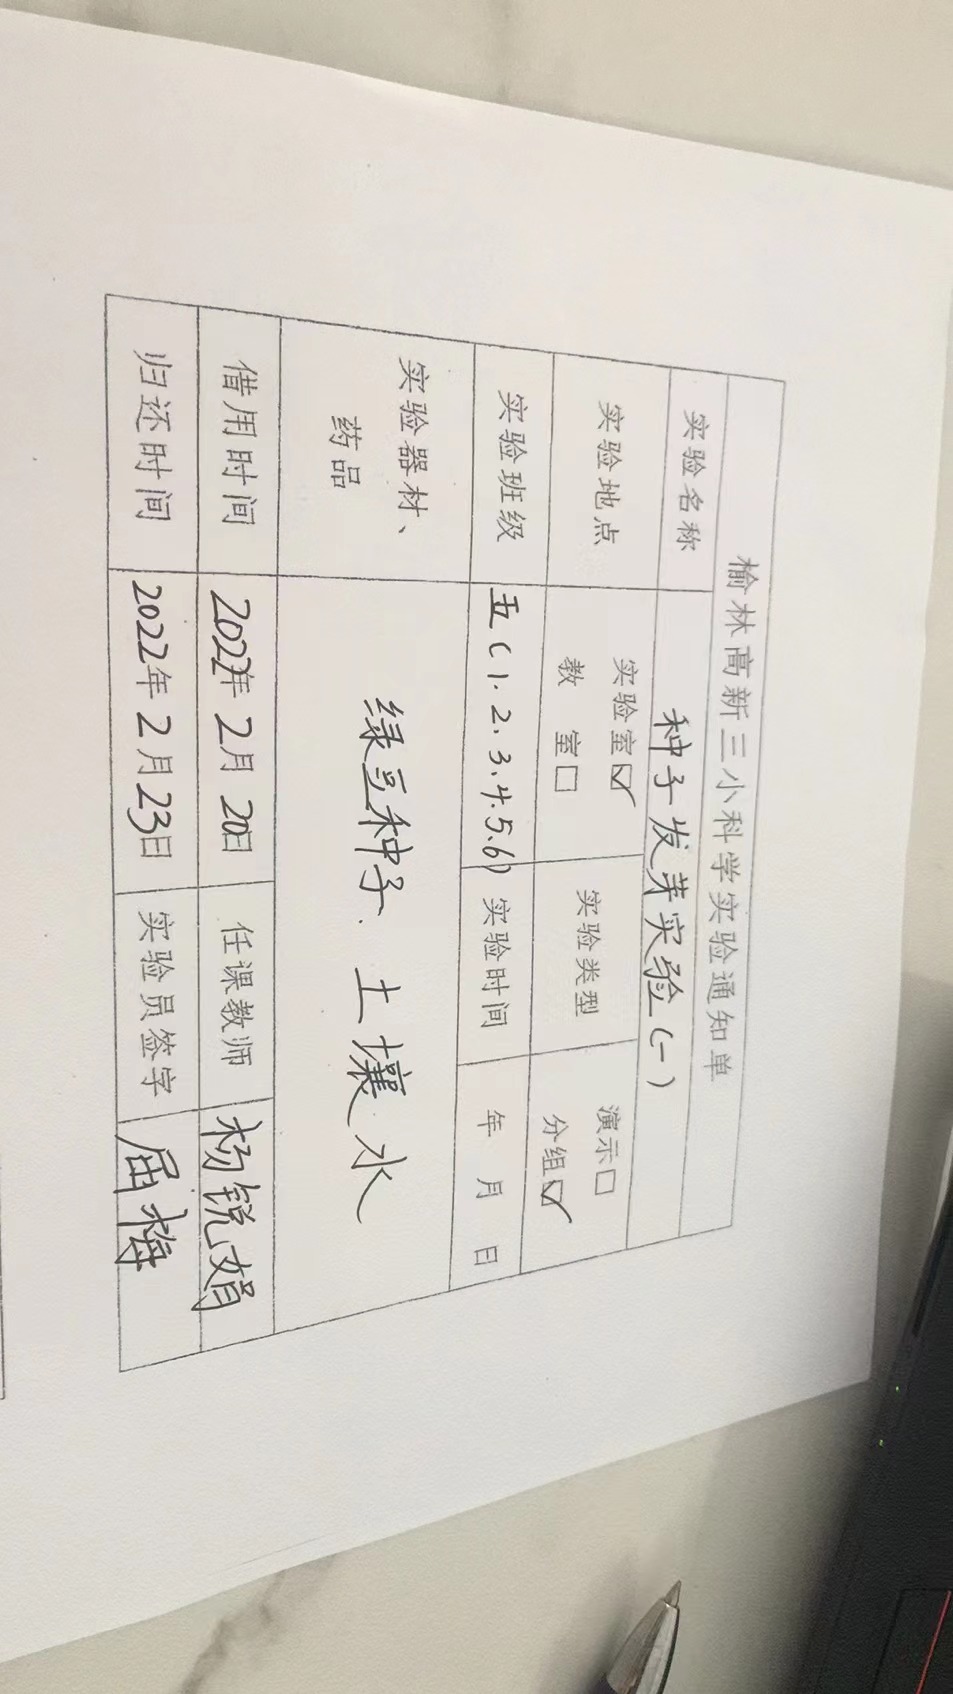 榆林高新三小科学实验通知单
实验名称 种子发芽实验(一)
实验地点 实验室☑ 教 室□ 实验类型 演示□ 分组☑
实验班级 五(1.2.3.4.5.6) 实验时间 年 月 日
实验器材、药品 绿豆种子、土壤、水
借用时间 2022年2月20日 任课教师 杨锐娟
归还时间 2022年2月23日 实验员签字 届梅